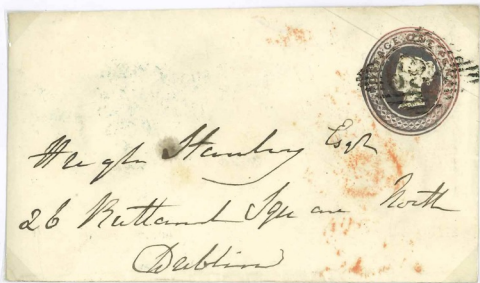 POSTAGE ONE PENNY
Hugh Hanley Esqr
26 Rutland Square North
Dublin